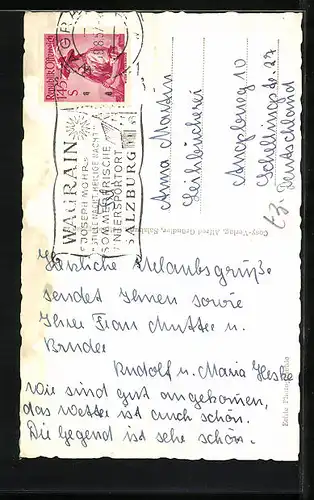 Republik Österreich
1.45 S
WAGRAIN
"JOSEPH MOHR"
"STILLE NACHT, HEILIGE NACHT"
SOMMERFRISCHE
WINTERSPORTORT
SALZBURG
Anna Martin
Leihbücherei
Augsburg 10
Schellingstr. 27
Deutschland
Cosy-Verlag, Alfred Gründler, Salzburg
Echte Photographie
Herzliche Urlaubsgrüße
sendet Ihnen sowie
Ihrer Frau Mutter u.
Bruder
Rudolf u. Maria
Wir sind gut angekommen,
das Wetter ist auch schön.
Die Gegend ist sehr schön.